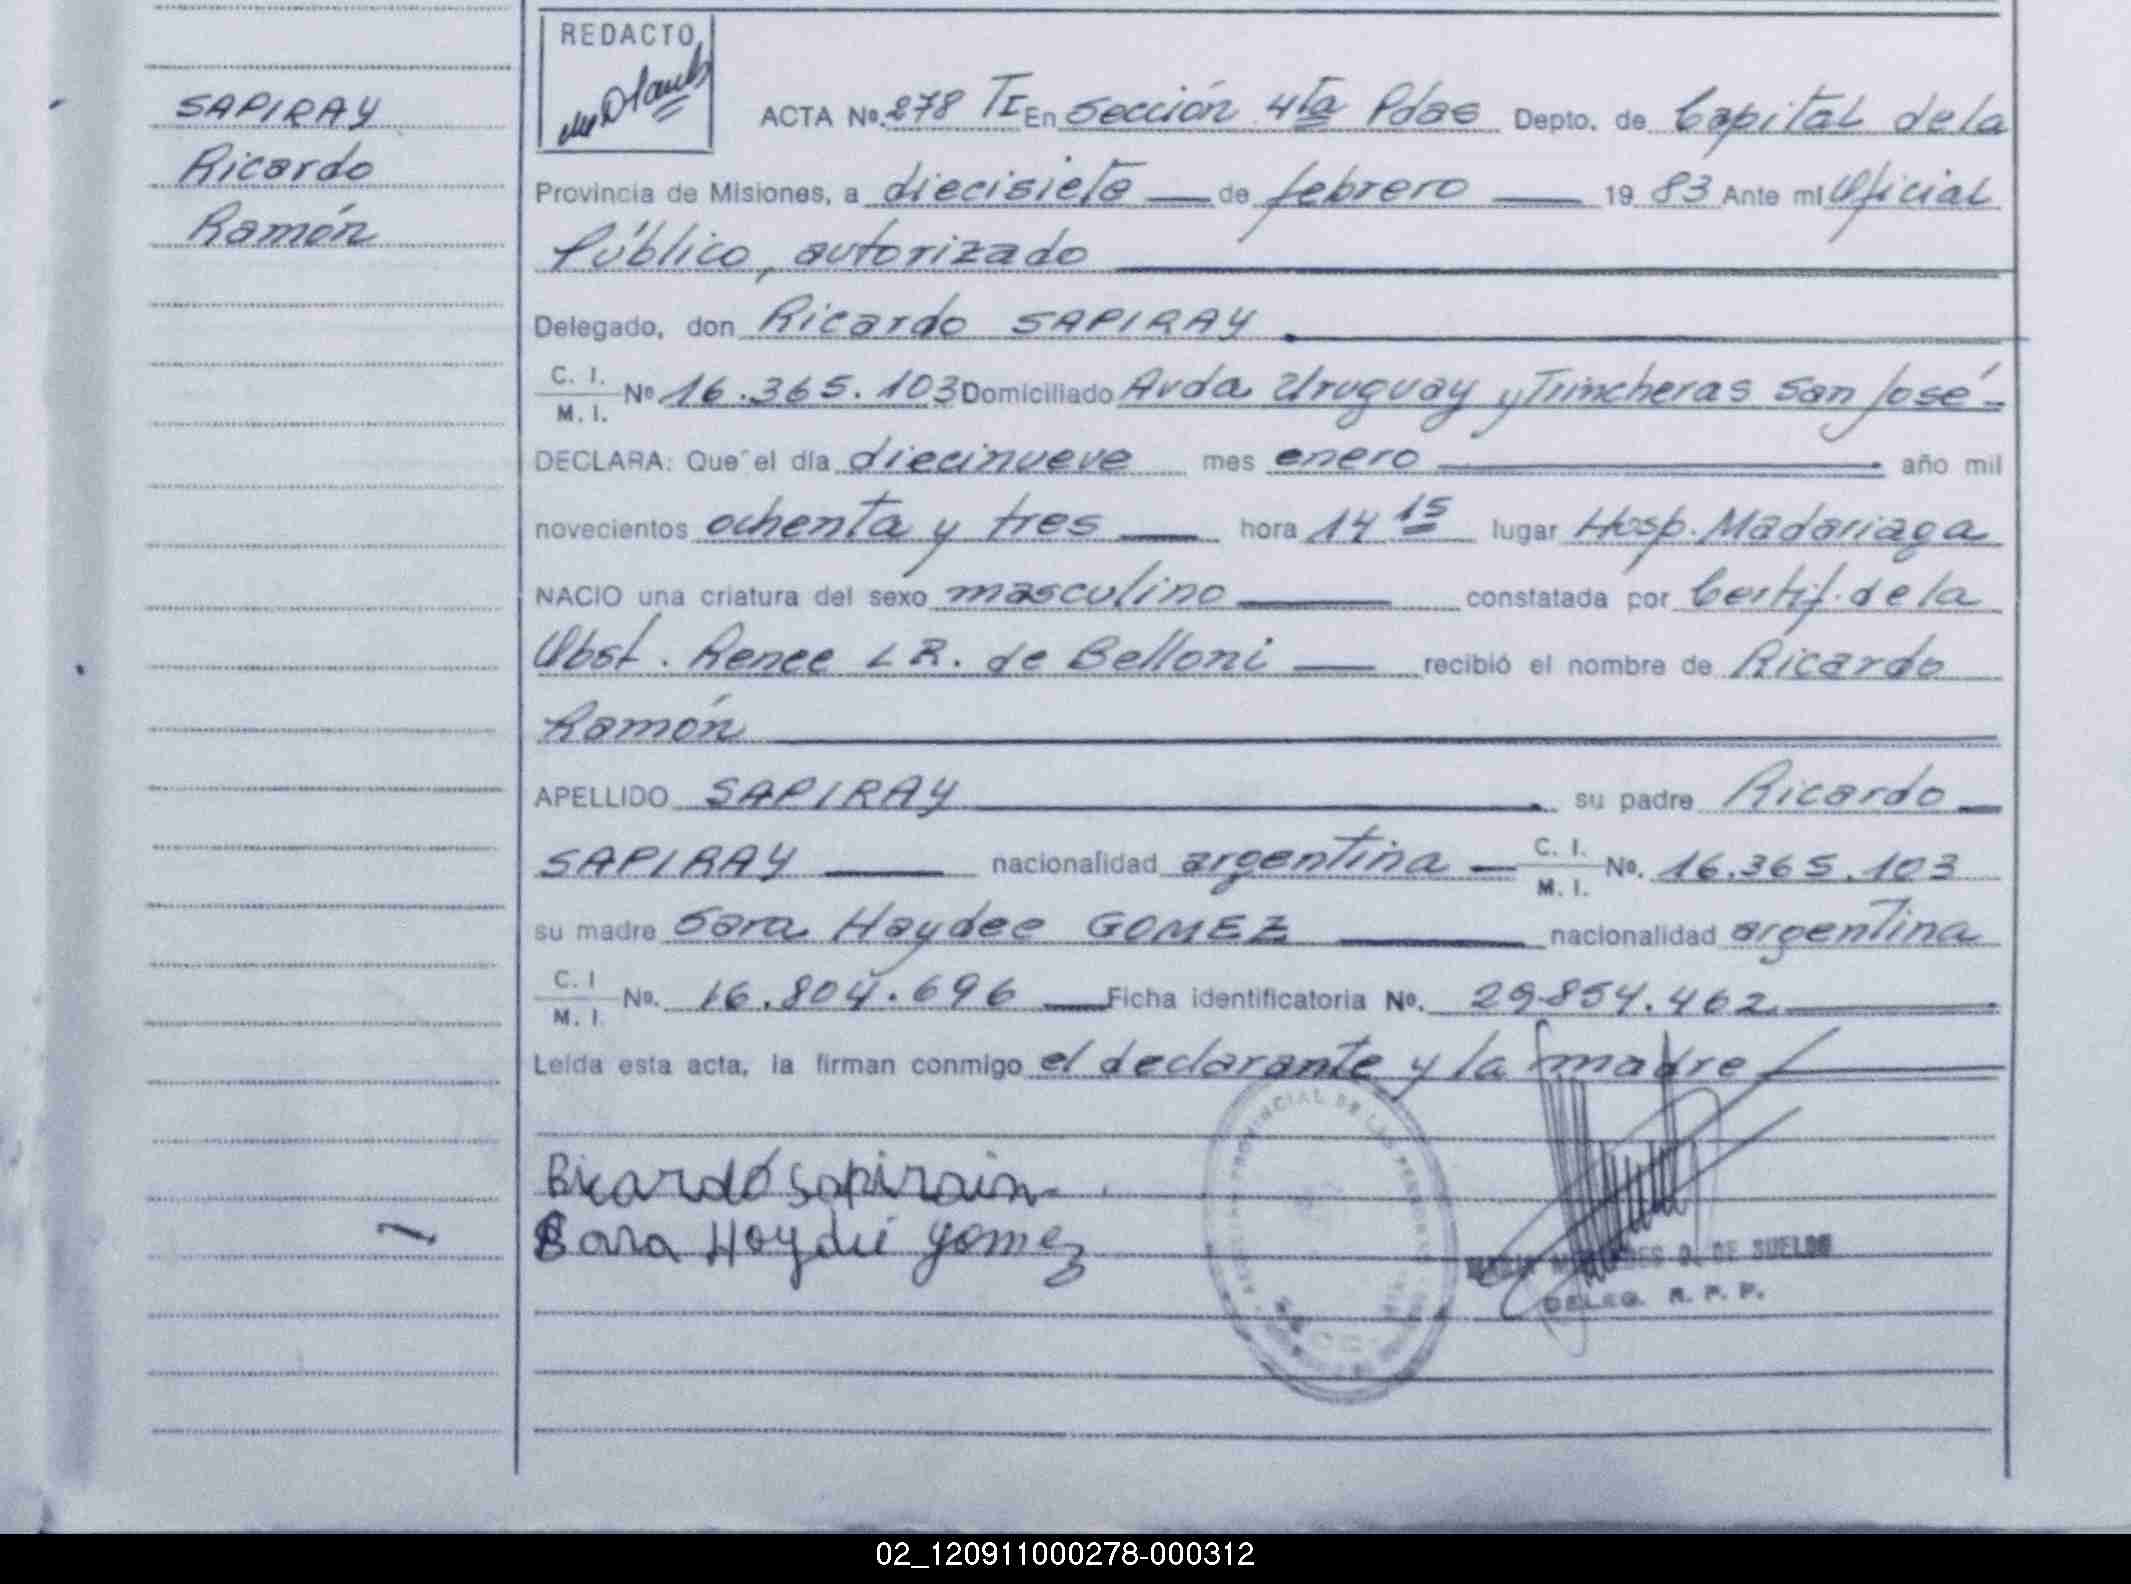 REDACTO
SAPIRAY
Ricardo
Ramón
ACTA Nº. 278 TI En Sección 4ta Pdas Depto. de Capital de la
Provincia de Misiones, a diecisiete de febrero 19 83 Ante mi Oficial
Público, autorizado
Delegado, don Ricardo SAPIRAY
C. I. M. I. Nº 16.365.103 Domiciliado Avda Uruguay y Trincheras San José
DECLARA: Que el día diecinueve mes enero año mil
novecientos ochenta y tres hora 14 15 lugar Hosp. Madariaga
NACIO una criatura del sexo masculino constatada por Certif. de la
Obst. Renee L R. de Belloni recibió el nombre de Ricardo
Ramón
APELLIDO SAPIRAY su padre Ricardo
SAPIRAY nacionalidad argentina C. I. M. I. Nº. 16.365.103
su madre Sara Haydee GOMEZ nacionalidad argentina
C. I M. I. Nº. 16.804.696 Ficha identificatoria Nº. 29.854.462
Leída esta acta, la firman conmigo el declarante y la madre
Ricardo Sapirain
Sara Haydeé Gomez
DE SUELDO
DELEG. R. P. P.
02_120911000278-000312